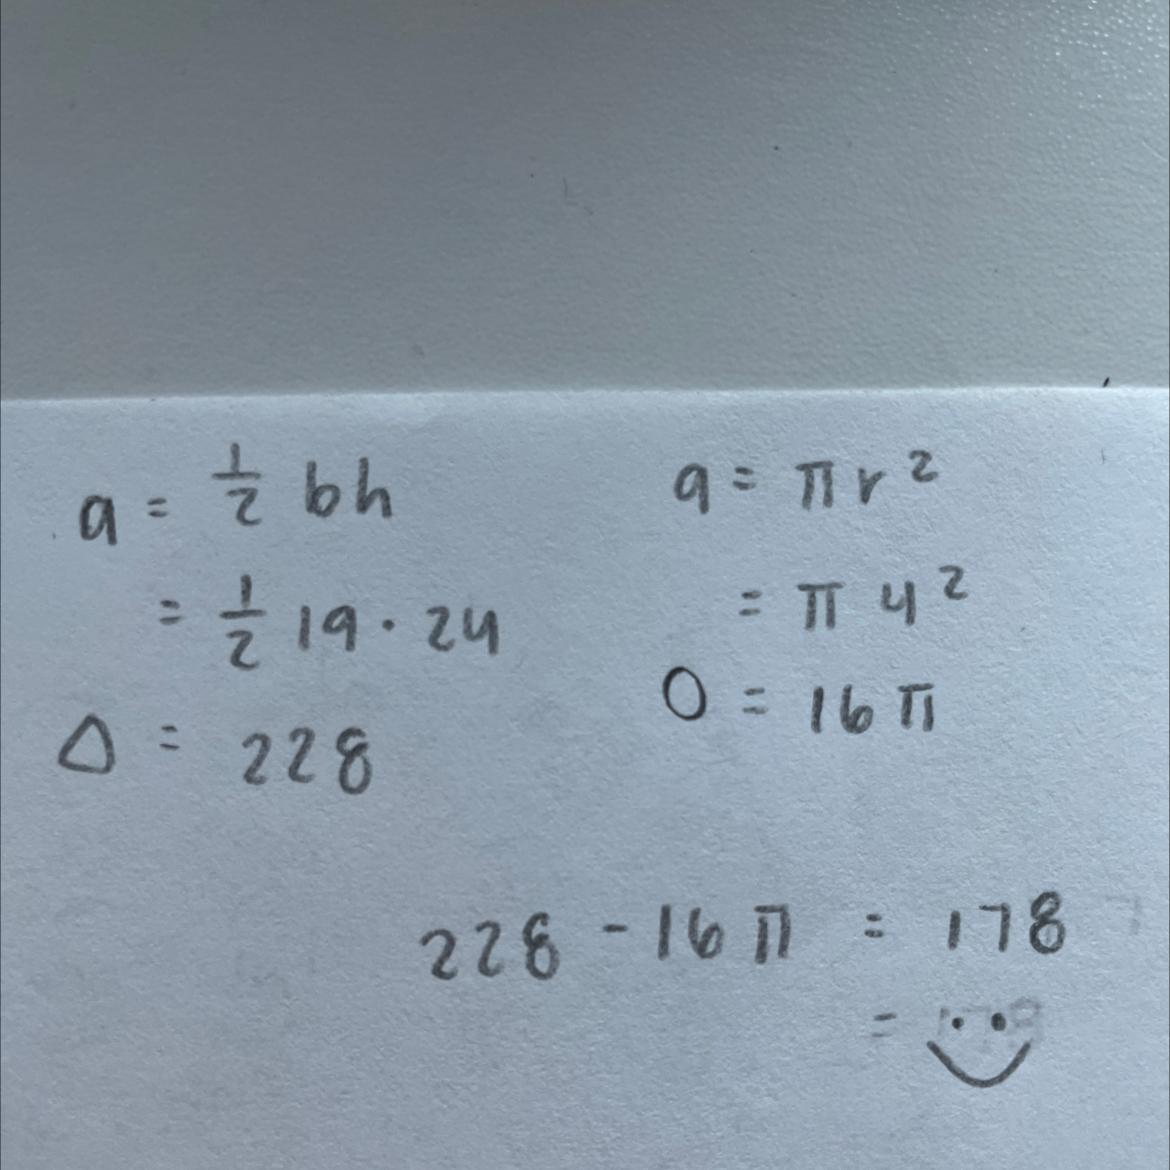 a = 1/2 bh
= 1/2 19 · 24
△ = 228
a = πr²
= π 4²
O = 16π
228 - 16π = 178
=